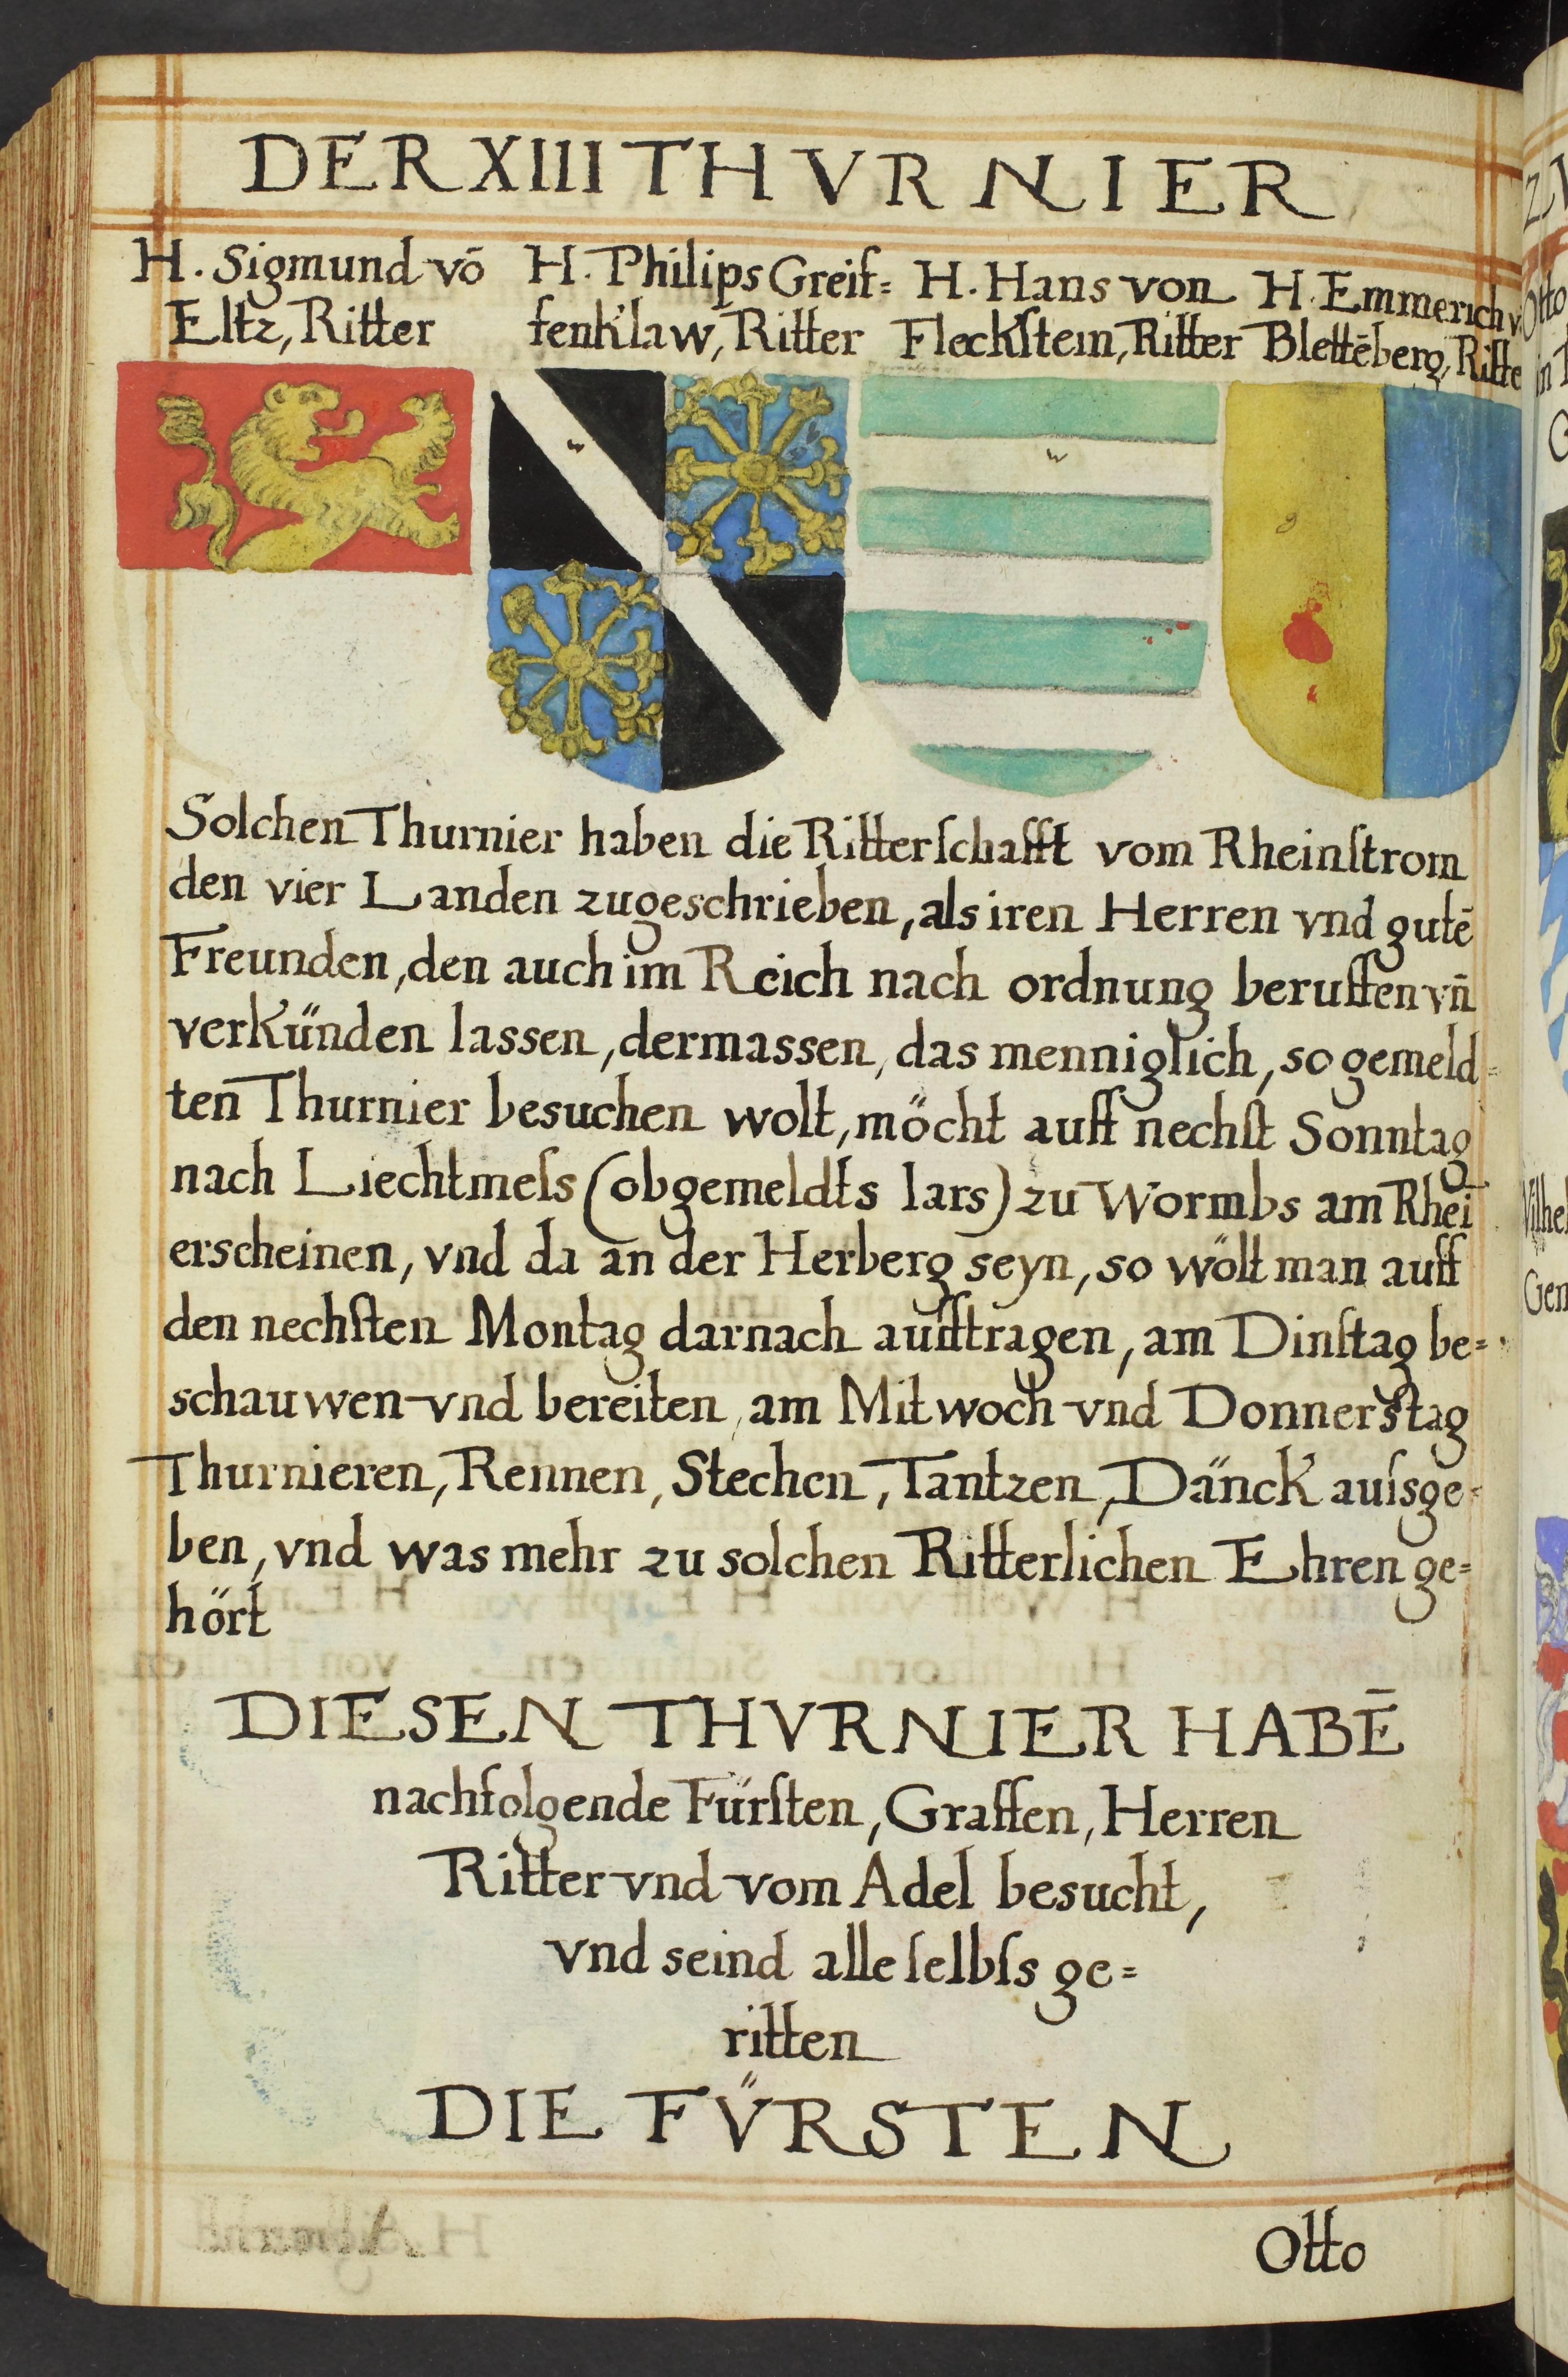 DER XIII THVRNIER
H. Sigmund vō Eltz, Ritter
H. Philips Greif=
fenklaw, Ritter
H. Hans von
Fleckſtein, Ritter
H. Emmerich v.
Blettēberg, Ritte
w
w
g
Solchen Thurnier haben die Ritterſchafft vom Rheinſtrom
den vier Landen zugeschrieben, als iren Herren vnd gutē
Freunden, den auch im Reich nach ordnung beruffen vn̄
verkünden lassen, dermassen, das menniglich, so gemeld=
ten Thurnier besuchen wolt, möcht auff nechſt Sonntag
nach Liechtmeſs (obgemeldts Iars) zu Wormbs am Rhei
erscheinen, vnd da an der Herberg seyn, so wölt man auff
den nechſten Montag darnach aufftragen, am Dinſtag be=
schauwen vnd bereiten, am Mitwoch vnd Donnerstag
Thurnieren, Rennen, Stechen, Tantzen, Dänck auſsge=
ben, vnd was mehr zu solchen Ritterlichen Ehren ge=
hört
DIESEN THVRNIER HABĒ
nachfolgende Fürſten, Graffen, Herren
Ritter vnd vom Adel besucht,
vnd seind alle ſelbſs ge=
ritten
DIE FV̈RSTEN
Otto